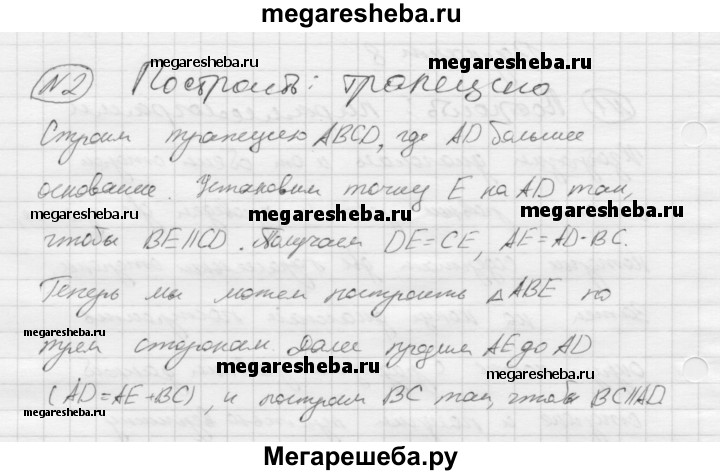 megaresheba.ru
№2 Построить: трапецию
megaresheba.ru megaresheba.ru
Строим трапецию ABCD, где AD большее
основание. Установим точку E на AD так,
megaresheba.ru megaresheba.ru megaresheba.ru
чтобы BE||CD. Получаем DE=CE, AE=AD-BC.
Теперь мы можем построить △ABE по
megaresheba.ru
трем сторонам. Далее продлим AE до AD
megaresheba.ru megaresheba.ru
(AD=AE+BC), и построим BC так, чтобы BC||AD.
megaresheba.ru megaresheba.ru
Мегарешеба.ру